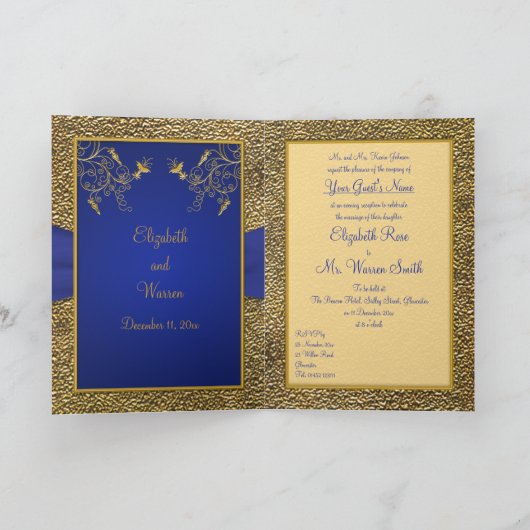 Elizabeth
and
Warren
December 11, 20xx
Mr. and Mrs. Kevin Johnson
request the pleasure of the company of
Your Guest's Name
at an evening reception to celebrate
the marriage of their daughter
Elizabeth Rose
to
Mr. Warren Smith
To be held at
The Beacon Hotel, Selley Street, Gloucester
at 8 o clock
RSVP by
25 November, 20xx
21 Willow Road,
Gloucester
Tel.